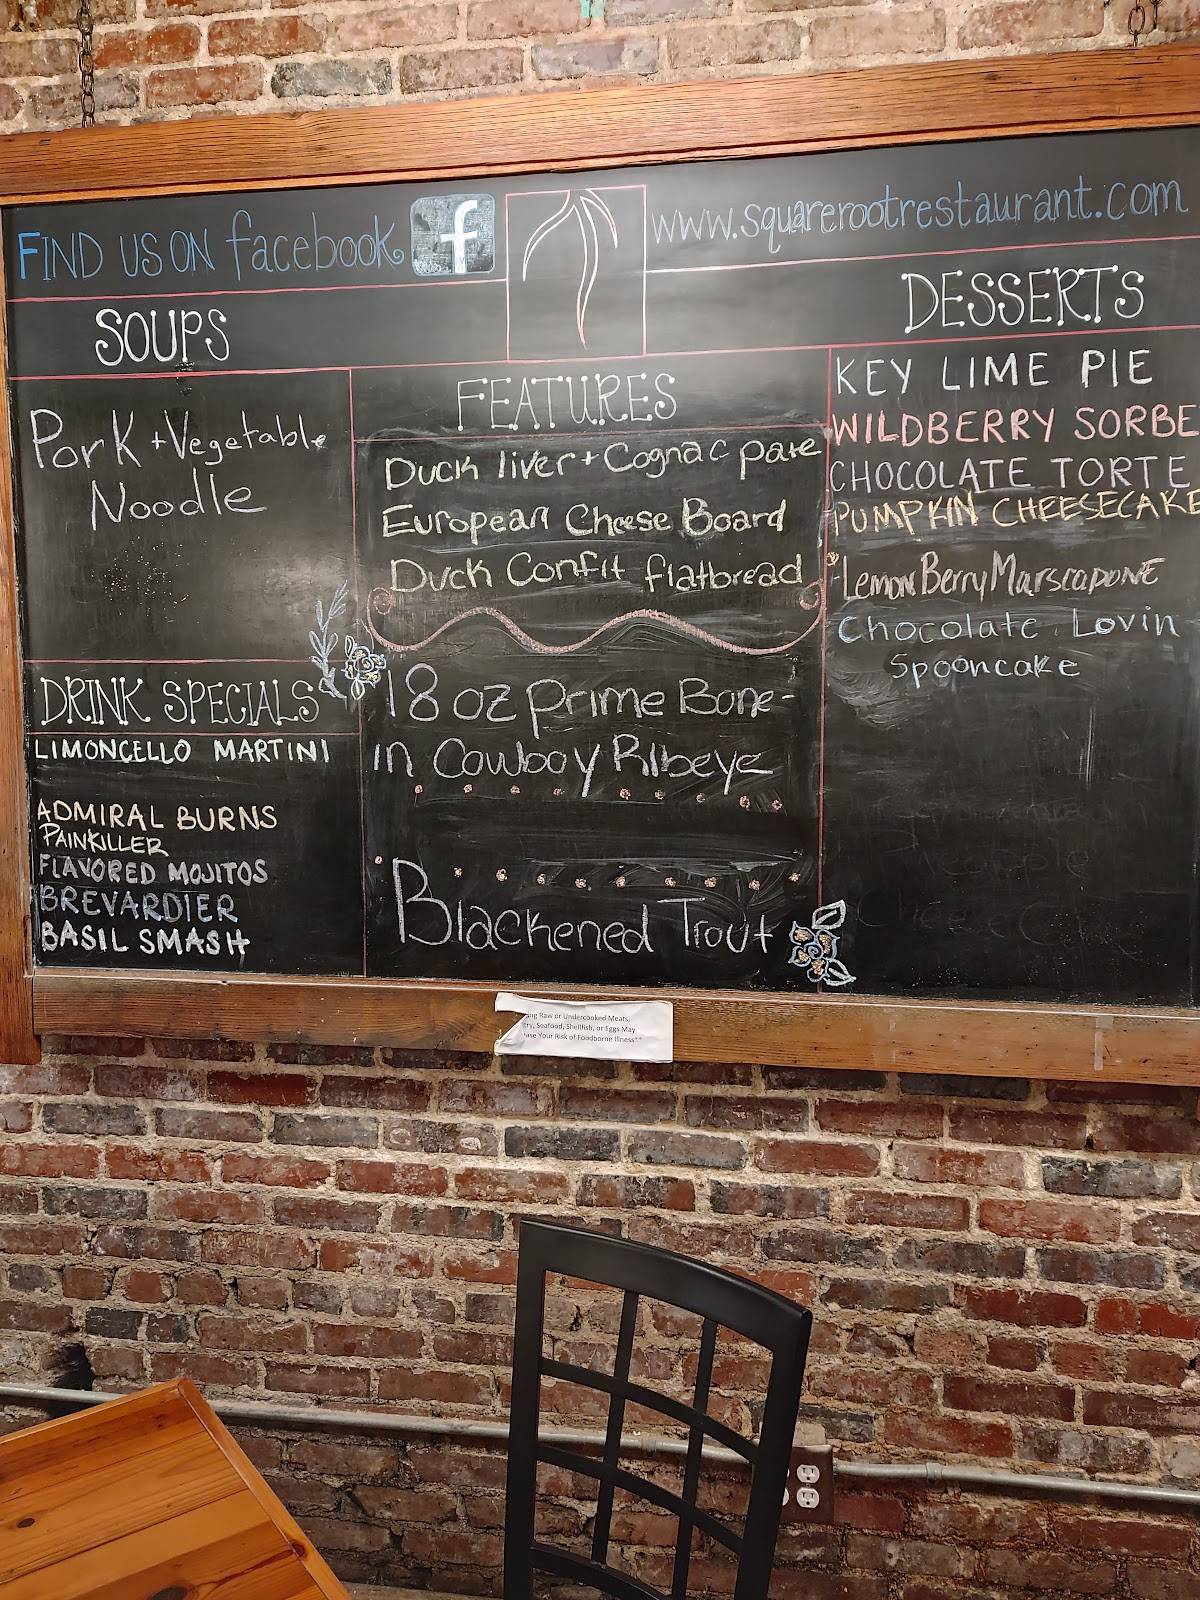 FIND US ON facebook
f
www.squarerootrestaurant.com
SOUPS
Pork + Vegetable
Noodle
DRINK SPECIALS
LIMONCELLO MARTINI
ADMIRAL BURNS
PAINKILLER
FLAVORED MOJITOS
BREVARDIER
BASIL SMASH
FEATURES
Duck liver + Cognac pate
European Cheese Board
Duck Confit flatbread
18 oz Prime Bone-
in Cowboy Ribeye
Blackened Trout
DESSERTS
KEY LIME PIE
WILDBERRY SORBE
CHOCOLATE TORTE
PUMPKIN CHEESECAKE
Lemon Berry Marscapone
Chocolate Lovin
Spooncake
Raw or Undercooked Meats,
Seafood, Shellfish, or Eggs May
Your Risk of Foodborne Illness**